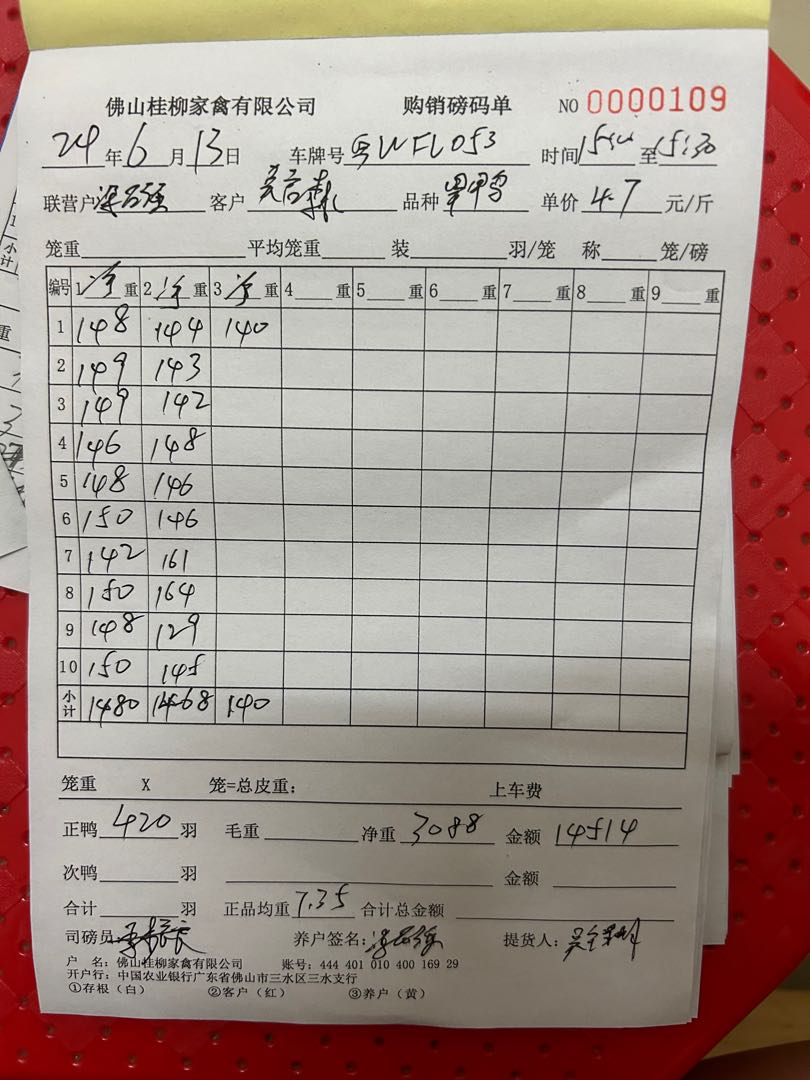 佛山桂柳家禽有限公司 购销磅码单 NO 0000109
24年6月13日 车牌号粤WFL053 时间 至15:30
联营户 客户 品种 单价4.7元/斤
笼重 平均笼重 装 羽/笼 称 笼/磅
编号 1净重 2净重 3净重 4重 5重 6重 7重 8重 9重
1 148 144 140
2 149 143
3 149 142
4 146 148
5 148 146
6 150 146
7 142 161
8 150 164
9 148 129
10 150 145
小计 1480 1468 140
笼重 X 笼=总皮重: 上车费
正鸭420羽 毛重 净重3088 金额14514
次鸭 羽 金额
合计 羽 正品均重7.35 合计总金额
司磅员: 养户签名: 提货人:
户 名: 佛山桂柳家禽有限公司 账号: 444 401 010 400 169 29
开户行: 中国农业银行广东省佛山市三水区三水支行
①存根(白) ②客户(红) ③养户(黄)